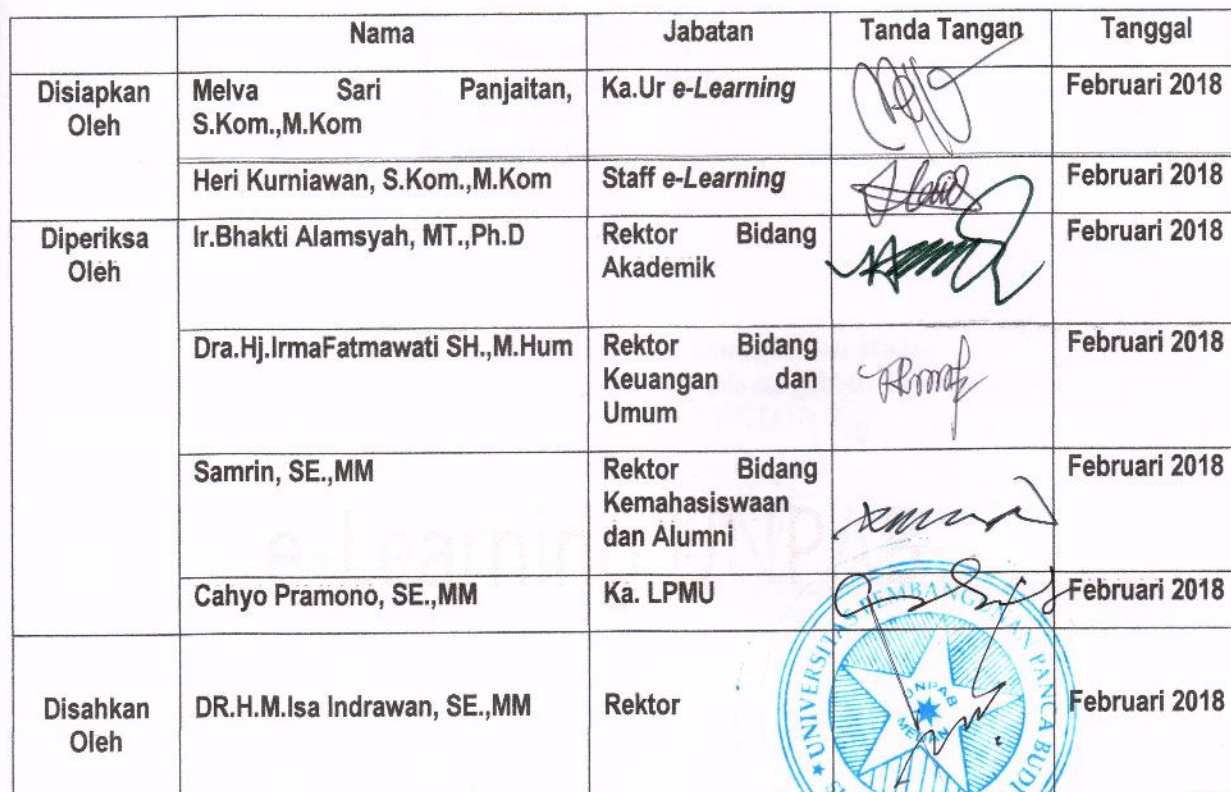 Nama Jabatan Tanda Tangan Tanggal
Disiapkan Oleh
Melva Sari Panjaitan,
S.Kom.,M.Kom
Ka.Ur e-Learning
Februari 2018
Heri Kurniawan, S.Kom.,M.Kom
Staff e-Learning
Februari 2018
Diperiksa
Oleh
Ir.Bhakti Alamsyah, MT.,Ph.D
Rektor Bidang
Akademik
Februari 2018
Dra.Hj.IrmaFatmawati SH.,M.Hum
Rektor Bidang
Keuangan dan
Umum
Februari 2018
Samrin, SE.,MM
Rektor Bidang
Kemahasiswaan
dan Alumni
Februari 2018
Cahyo Pramono, SE.,MM
Ka. LPMU
Februari 2018
Disahkan
Oleh
DR.H.M.Isa Indrawan, SE.,MM
Rektor
Februari 2018
UNIVERSITAS PEMBANGUNAN PANCA BUDI
UNPAB
MEDAN
e-Learning UNPAB